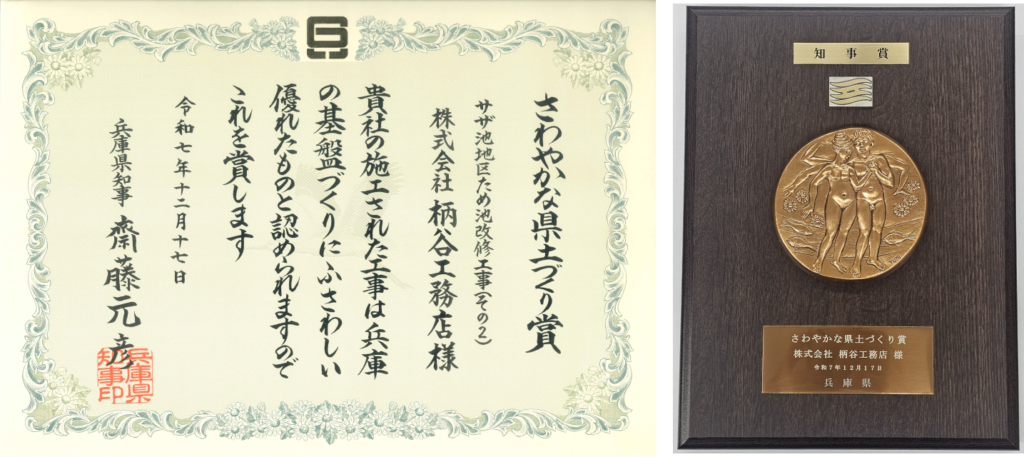 さわやかな県土づくり賞
サザ池地区ため池改修工事(その2)
株式会社 柄谷工務店 様
貴社の施工された工事は兵庫
の基盤づくりにふさわしい
優れたものと認められますので
これを賞します
令和七年十二月十七日
兵庫県知事 齋藤元彦
兵庫県
知事印
知事賞
さわやかな県土づくり賞
株式会社 柄谷工務店 様
令和7年12月17日
兵庫県